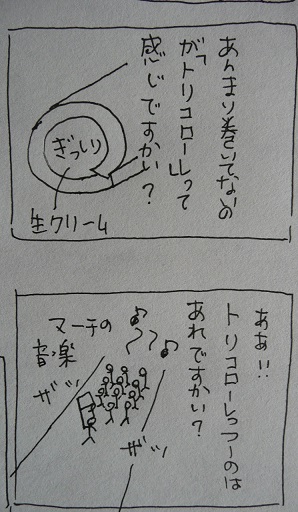 あんまり巻いてないの
がトリコロールって
感じですかい？
ぎっしり
生クリーム
ああ!!
トリコローレっつーのは
あれですかい？
マーチの
音楽
ザッ
ザッ